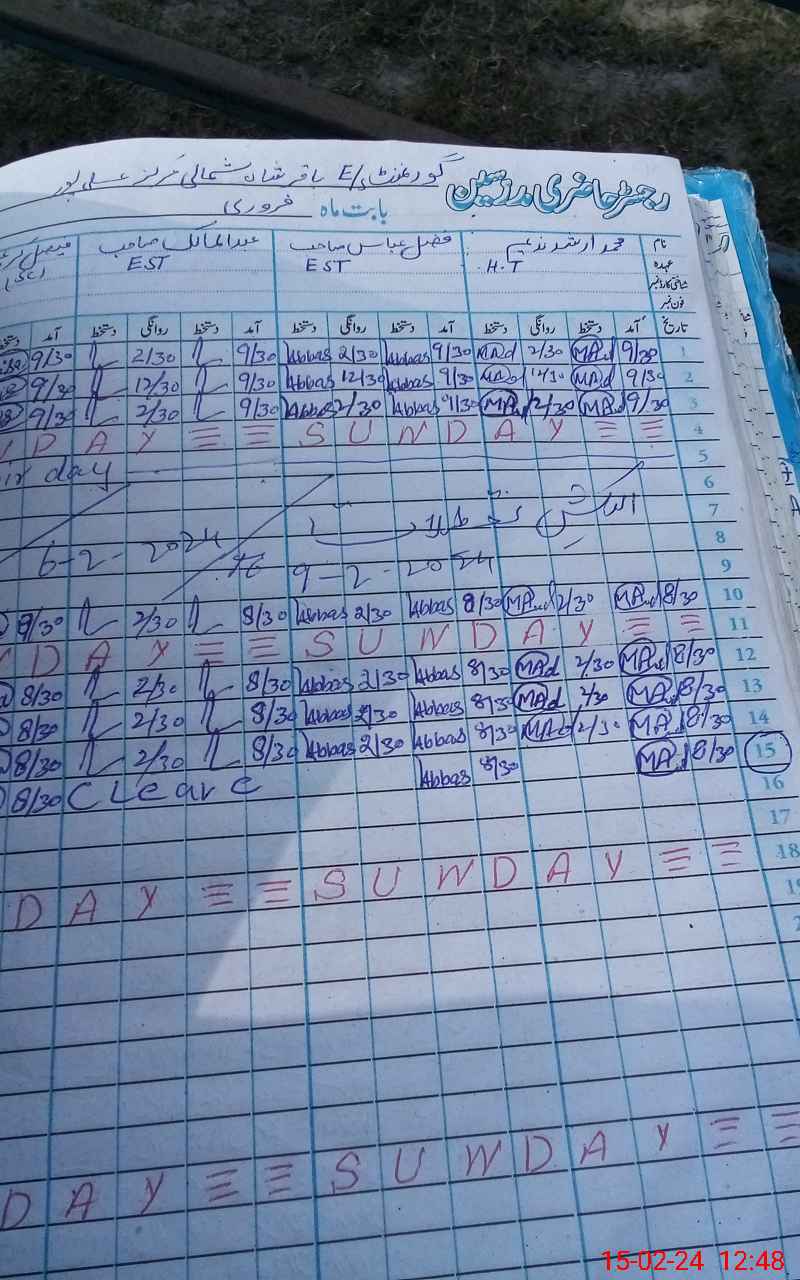 رجسٹر حاضری مدرسین گورنمنٹ E/S باقر شاہ شمالی مرکز علی پور
بابت ماہ فروری
نام محمد ارشد ندیم فضل عباس صاحب عبدالمالک صاحب فیصل
عہدہ H.T EST EST
شناختی کارڈ نمبر
فون نمبر
تاریخ آمد دستخط روانگی دستخط آمد دستخط روانگی دستخط آمد دستخط روانگی دستخط آمد
1 9/30 MAd 2/30 MAd 9/30 Abbas 2/30 Abbas 9/30 2/30 9/30
2 9/30 MAd 12/30 MAd 9/30 Abbas 12/30 Abbas 9/30 12/30 9/30
3 9/30 MAd 2/30 MAd 9/30 Abbas 2/30 Abbas 9/30 2/30 9/30
DAY SUNDAY 4
day 5
6
الیکشن 7
6-2-2024 to 9-2-2024 8
9
10 8/30 MAd 2/30 MAd 8/30 Abbas 2/30 Abbas 8/30 2/30 8/30
DAY SUNDAY 11
12 8/30 MAd 2/30 MAd 8/30 Abbas 2/30 Abbas 8/30 2/30 8/30
13 8/30 MAd 2/30 MAd 8/30 Abbas 2/30 Abbas 8/30 2/30 8/30
14 8/30 MAd 2/30 MAd 8/30 Abbas 2/30 Abbas 8/30 2/30 8/30
15 8/30 MAd 8/30 Abbas CLeave 8/30
16
17
DAY SUNDAY 18
DAY SUNDAY
15-02-24 12:48